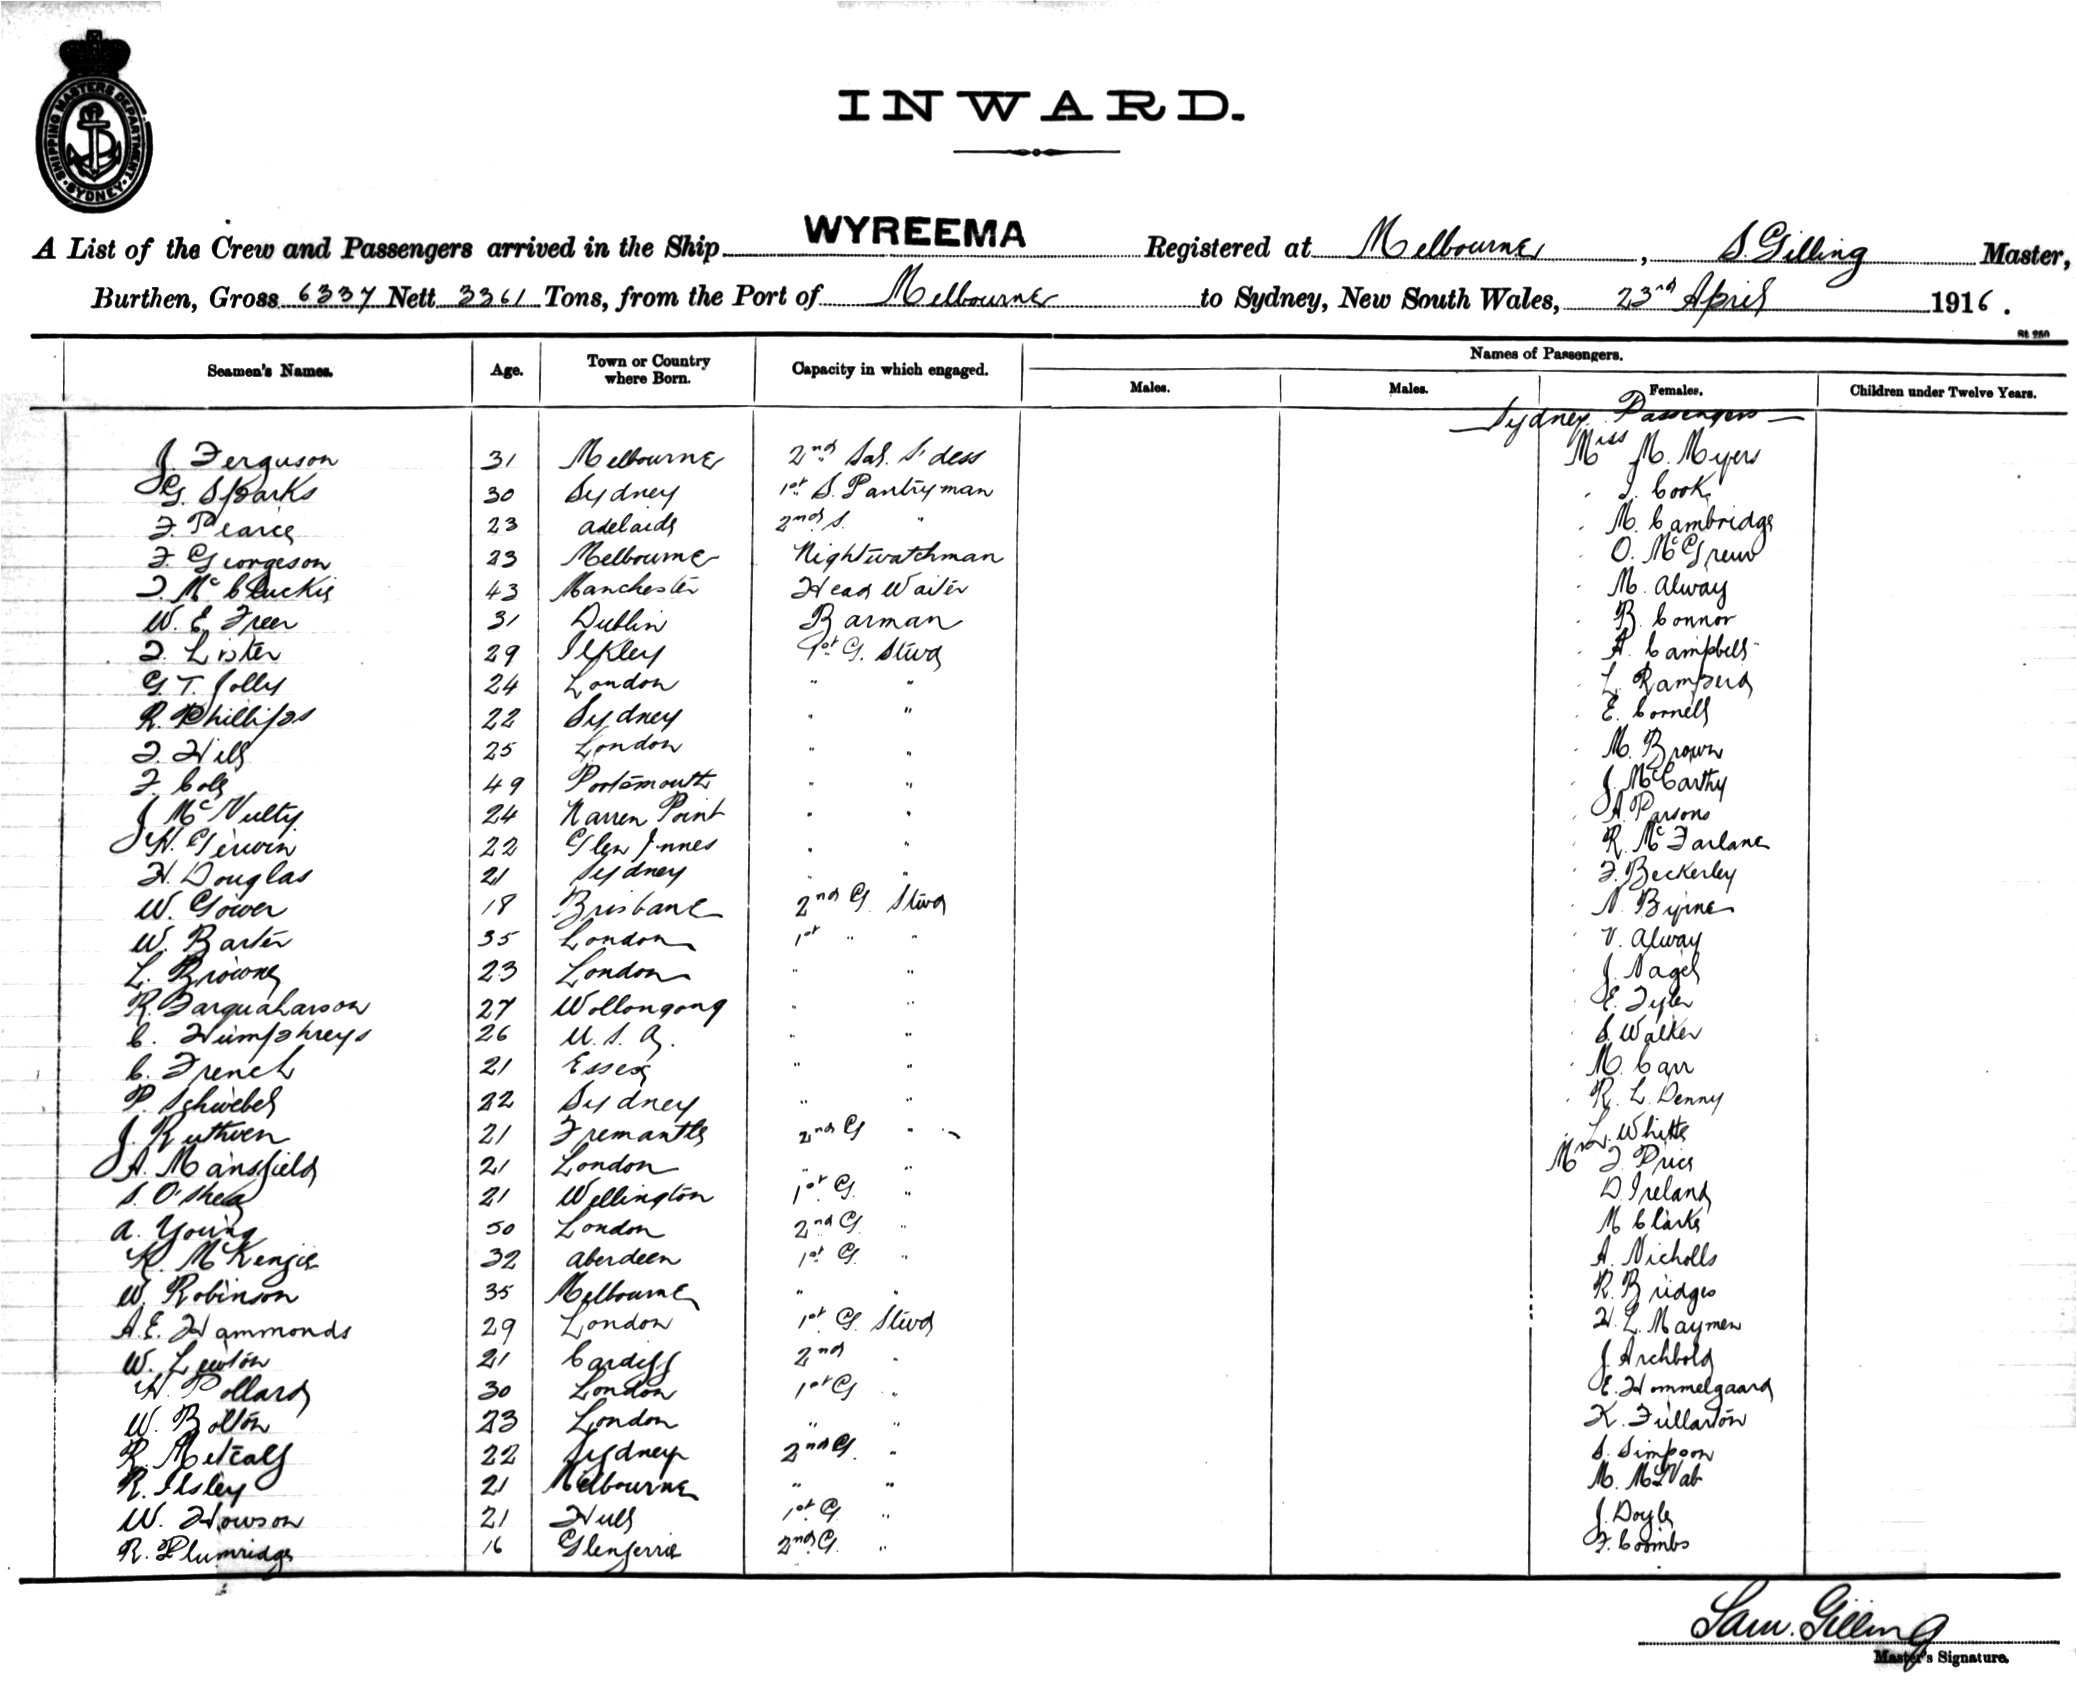 SHIPPING MASTERS DEPARTMENT
SYDNEY
INWARD.
A List of the Crew and Passengers arrived in the Ship WYREEMA Registered at Melbourne, S. Gilling Master,
Burthen, Gross 6337 Nett 3361 Tons, from the Port of Melbourne to Sydney, New South Wales, 23rd April 1916.
St. 250
Seamen's Names. Age. Town or Country where Born. Capacity in which engaged. Names of Passengers.
Males. Males. Females. Children under Twelve Years.
Sydney Passengers
J. Ferguson 31 Melbourne 2nd Sal. S'dess Miss M. Myers
G. Sparks 30 Sydney 1st S. Pantryman " Cook
F. Pearce 23 Adelaide 2nd S. " " M. Cambridge
F. Georgeson 23 Melbourne Nightwatchman " O. McGrew
McCluckie 43 Manchester Head Waiter " M. Alway
W. E. Freer 31 Dublin Barman " B. Connor
Lister 29 Ilkley 1st G. Stwd " A. Campbell
G. T. Jolly 24 London " " " L.
R. Phillips 22 Sydney " " " E. Cornell
Hill 25 London " " " M. Brown
F. Cole 49 Portsmouth " " " J. McCarthy
J. McNulty 24 Warren Point " " " A. Parsons
H. Gerwin 22 Glen Innes " " " R. McFarlane
H. Douglas 21 Sydney " " " F. Beckerley
W. Gower 18 Brisbane 2nd G. Stwd " N. Byrne
W. Barter 35 London 1st " " " V. Alway
L. Browne 23 London " " " J. Nagel
R. Farquaharson 27 Wollongong " " " E. Tyler
C. Humphreys 26 U.S.A. " " " S. Walker
C. French 21 Essex " " " M. Carr
P. Schwebel 22 Sydney " " " R. L. Denny
J. Ruthven 21 Fremantle 2nd G " " L. White
A. Mansfield 21 London " " Mrs Price
S. O'Shea 21 Wellington 1st G. " D. Ireland
A. Young 50 London 2nd G " M. Clarke
K. McKenzie 32 Aberdeen 1st G. " A. Nicholls
W. Robinson 35 Melbourne " " R. Bridges
A. E. Hammonds 29 London 1st G. Stwd H. L. Maymen
W. Lewton 21 Cardiff 2nd " J. Archbold
H. Pollard 30 London 1st G " E. Hommelgaard
W. Bolton 23 London " " K. Fullarton
R. Metcalf 22 Sydney 2nd G. " S. Simpson
R. Ilsley 21 Melbourne " " M. McNab
W. Howson 21 Hull 1st G " J. Doyle
R. Plumridge 16 Glenferrie 2nd G. " F. Coombs
Sam. Gilling
Master's Signature.